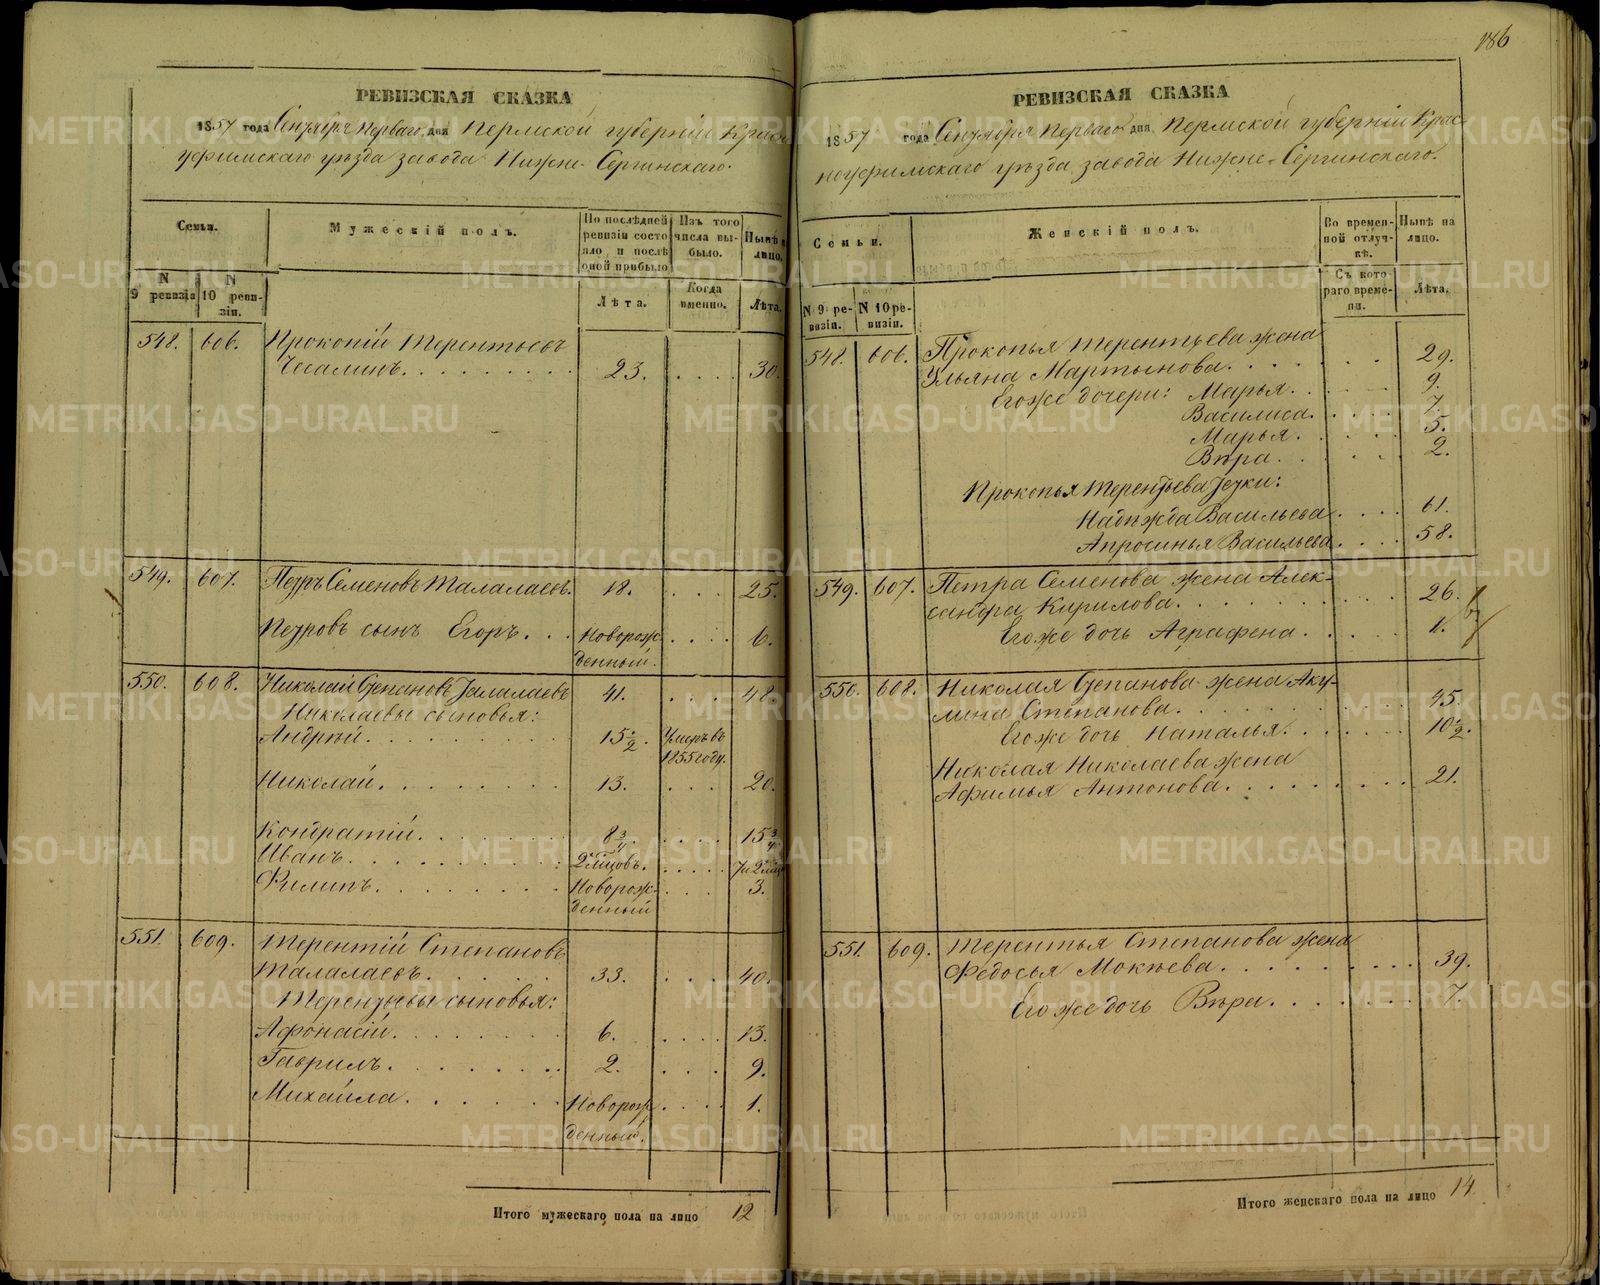 186
РЕВИЗСКАЯ СКАЗКА
1857 года Сентября Перваго дня Пермской губерніи Красн
уфимскаго уѣзда завода Нижне-Сергинскаго.
Семьи.
Мужескій полъ.
По послѣдней ревизіи состояло и послѣ оной прибыло
Изъ того числа выбыло.
Нынѣ на лицо.
N 9 ревизіи
N 10 ревизіи.
Лѣта.
Когда именно.
Лѣта.
548. 606. Прокопій Терентьевъ
Чесалинъ. 23. 30.
549. 607. Петръ Семеновъ Талалаевъ. 18. 25.
Петровъ сынъ Егоръ. Новорож 6.
денный.
550. 608. Николай Степановъ Талалаевъ 41. 48
Николаевы сыновья:
Андрѣй. 15 1/2. Умеръ въ
1855 году.
Николай. 13. 20.
Кондратій. 8 3/4. 15 3/4
Иванъ. 2 мѣсяцовъ. 7 и 2 мѣс
Филипъ. Новорож- 3.
денный
551. 609. Терентій Степановъ
Талалаевъ. 33. 40.
Терентьевы сыновья:
Афонасій. 6. 13.
Гаврилъ. 2. 9.
Михайла. Новорож 1.
денный.
Итого мужескаго пола на лицо 12
РЕВИЗСКАЯ СКАЗКА
1857 года Сентября Перваго дня Пермской губерніи Крас-
ноуфимскаго уѣзда завода Нижне-Сергинскаго.
Семьи.
Женскій полъ.
Во временной отлучкѣ.
Нынѣ на лицо.
N 9 ревизіи.
N 10 ревизіи.
Съ котораго времени.
Лѣта.
548. 606. Прокопья Терентьева жена
Ульяна Мартынова. 29.
Его же дочери: Марья. 9.
Василиса. 7.
Марья. 5.
Вѣра. 2.
Прокопья Терентьева Тетки:
Надѣжда Васильева 61.
Апросинья Васильева 58.
549. 607. Петра Семенова жена Алек-
сандра Кирилова. 26.
Его же дочь Аграфена. 1.
550. 608. Николая Степанова жена Аку-
лина Степанова. 45.
Его же дочь Наталья. 10 1/2.
Николая Николаева жена
Афимья Антонова. 21.
551. 609. Терентья Степанова жена
Федосья Мокѣева. 39.
Его же дочь Вѣра. 7.
Итого женскаго пола на лицо 14
METRIKI.GASO-URAL.RU